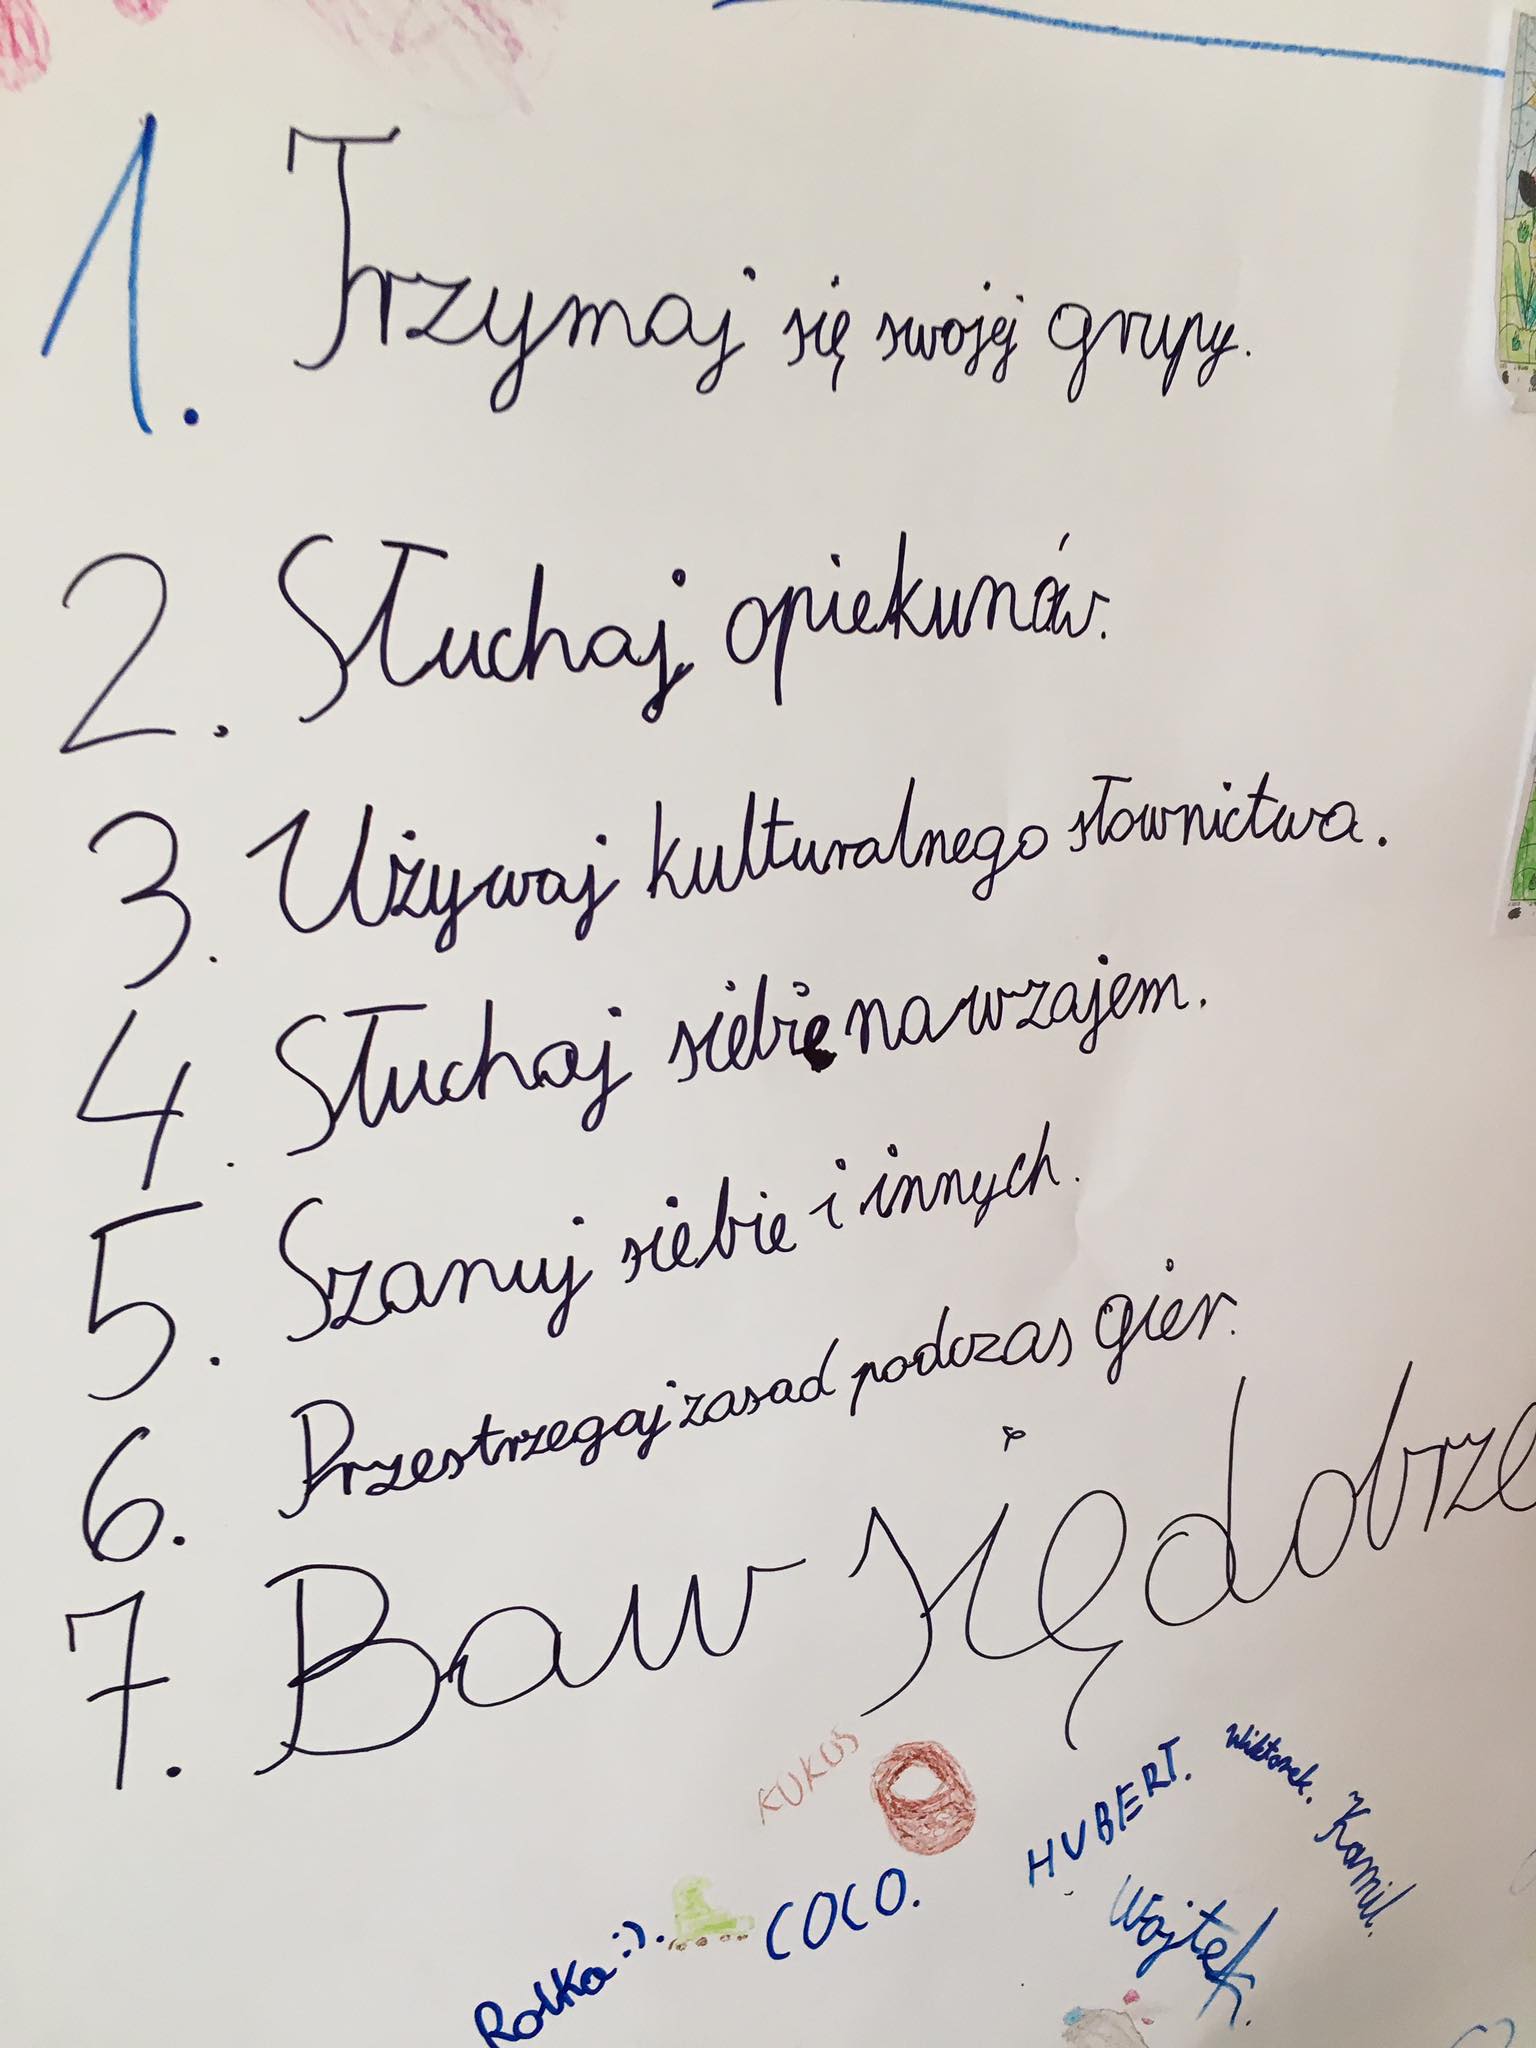 1. Trzymaj się swojej grupy.
2. Słuchaj opiekunów.
3. Używaj kulturalnego słownictwa.
4. Słuchaj siebie nawzajem.
5. Szanuj siebie i innych.
6. Przestrzegaj zasad podczas gier.
7. Baw się dobrze
KUKOS
HUBERT.
Wiktorek.
Kamil.
COCO.
Wojtek.
Rolka :).